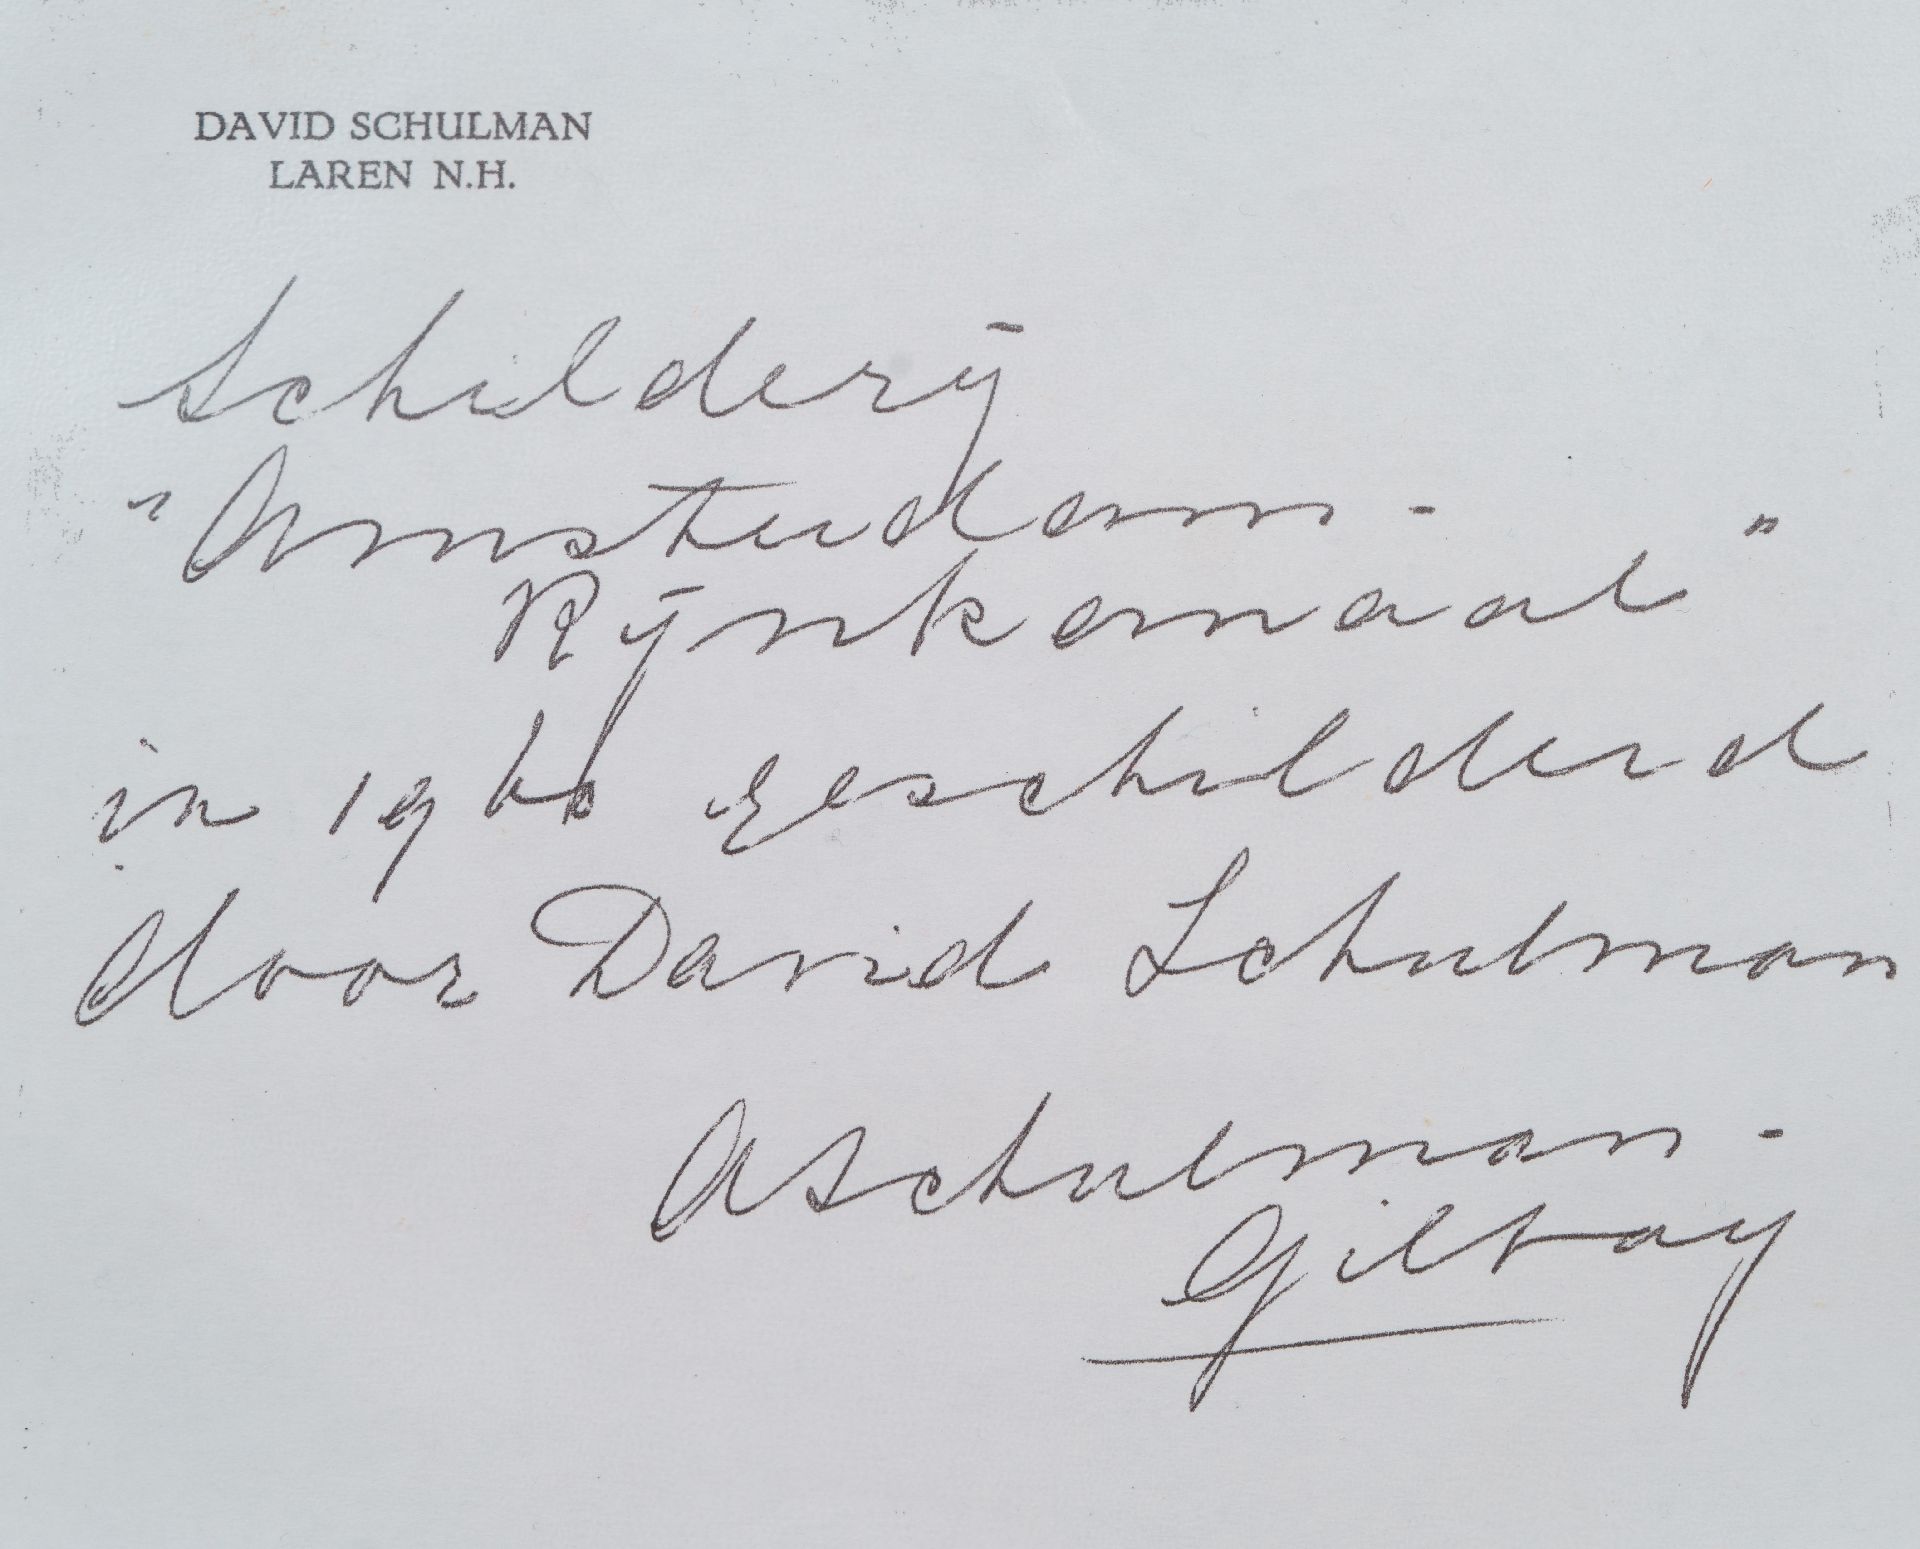 DAVID SCHULMAN
LAREN N.H.
Schilderij
"Amsterdam-
Rijnkanaal"
in 1960 geschilderd
door David Schulman
ASchulman-
Giltay